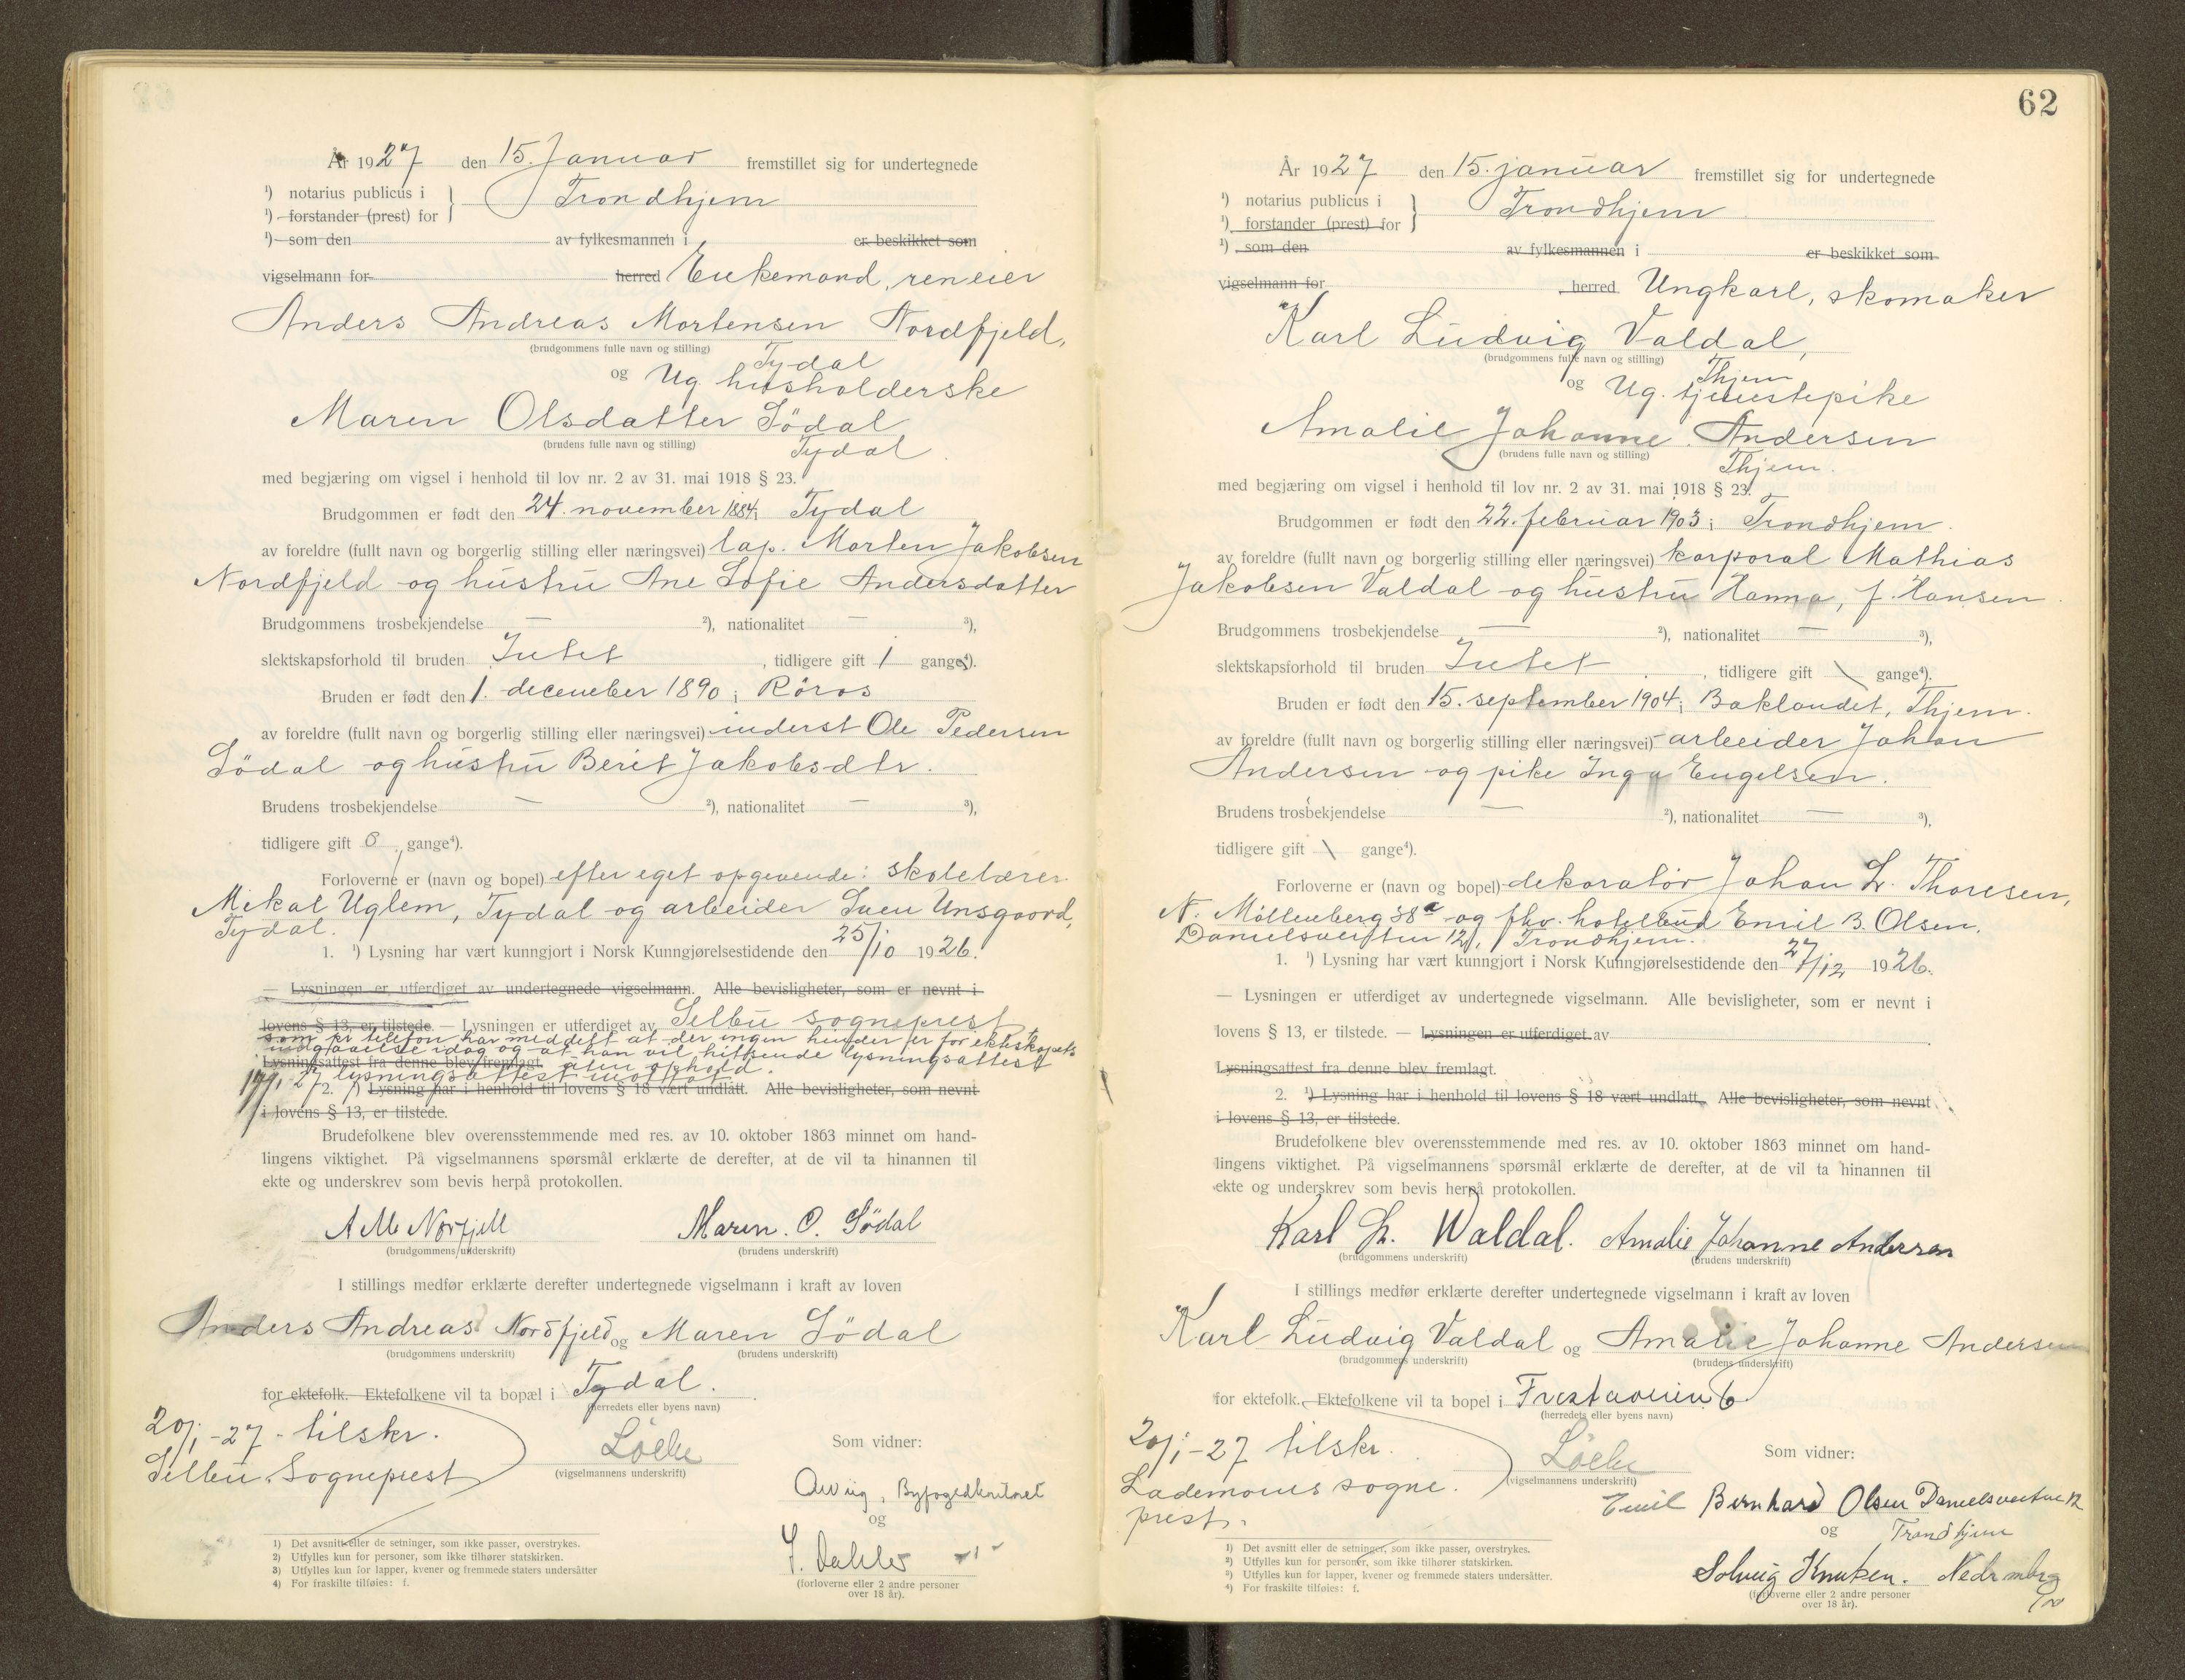 År 1927 den 15. Januar fremstillet sig for undertegnede
¹) notarius publicus i
¹) forstander (prest) for
Trondhjem
¹) som den av fylkesmannen i er beskikket som
vigselmann for herred Enkemand, reneier
Anders Andreas Mortensen Nordfjeld,
(brudgommens fulle navn og stilling)
Tydal
og Ug. husholderske
Maren Olsdatter Södal
(brudens fulle navn og stilling)
Tydal
med begjæring om vigsel i henhold til lov nr. 2 av 31. mai 1918 § 23.
Brudgommen er født den 24. november 1884 i Tydal
av foreldre (fullt navn og borgerlig stilling eller næringsvei) lap. Morten Jakobsen
Nordfjeld og hustru Ane Sofie Andersdatter
Brudgommens trosbekjendelse — ²), nationalitet — ³),
slektskapsforhold til bruden Intet, tidligere gift 1 gange⁴).
Bruden er født den 1. december 1890 i Röros
av foreldre (fullt navn og borgerlig stilling eller næringsvei) inderst Ole Pedersen
Södal og hustru Berit Jakobsdtr.
Brudens trosbekjendelse — ²), nationalitet — ³),
tidligere gift 0 gange⁴).
Forloverne er (navn og bopel) efter eget opgivende: skolelærer
Mikal Uglem, Tydal og arbeider Sven Unsgaard,
Tydal.
1. ¹) Lysning har vært kunngjort i Norsk Kunngjørelsestidende den 25/10 1926.
— Lysningen er utferdiget av undertegnede vigselmann. Alle bevisligheter, som er nevnt i
lovens § 13, er tilstede. — Lysningen er utferdiget av Selbu sogneprest
som pr telefon har meddelt at der ingen hinder er for ekteskapets
indgaaelse idag og at han vil hitsende lysningsattest
Lysningsattest fra denne blev fremlagt. uten ophold.
17/1-27 lysningsattest mottat
2. ¹) Lysning har i henhold til lovens § 18 vært undlatt. Alle bevisligheter, som nevnt
i lovens § 13, er tilstede.
Brudefolkene blev overensstemmende med res. av 10. oktober 1863 minnet om hand-
lingens viktighet. På vigselmannens spørsmål erklærte de derefter, at de vil ta hinannen til
ekte og underskrev som bevis herpå protokollen.
A M Norfjell Maren. O. Södal
(brudgommens underskrift) (brudens underskrift)
I stillings medfør erklærte derefter undertegnede vigselmann i kraft av loven
Anders Andreas Nordfjeld og Maren Södal
(brudgommens underskrift) (brudens underskrift)
for ektefolk. Ektefolkene vil ta bopæl i Tydal.
(herredets eller byens navn)
20/1-27 - tilskr.
Selbu Sogneprest
(vigselmannens underskrift)
Som vidner:
Byfogedkontoret
og
(forloverne eller 2 andre personer
over 18 år).
1) Det avsnitt eller de setninger, som ikke passer, overstrykes.
2) Utfylles kun for personer, som ikke tilhører statskirken.
3) Utfylles kun for lapper, kvener og fremmede staters undersåtter
4) For fraskilte tilføies: f.
62
År 1927 den 15. januar fremstillet sig for undertegnede
¹) notarius publicus i
¹) forstander (prest) for
Trondhjem
¹) som den av fylkesmannen i er beskikket som
vigselmann for herred Ungkarl, skomaker
Karl Ludvig Valdal,
(brudgommens fulle navn og stilling)
Thjem
og Ug. tjenestepike
Amalie Johanne Andersen
(brudens fulle navn og stilling)
Thjem.
med begjæring om vigsel i henhold til lov nr. 2 av 31. mai 1918 § 23.
Brudgommen er født den 22. februar 1903 i Trondhjem.
av foreldre (fullt navn og borgerlig stilling eller næringsvei) korporal Mathias
Jakobsen Valdal og hustru Hanna, f. Hansen.
Brudgommens trosbekjendelse — ²), nationalitet — ³),
slektskapsforhold til bruden Intet, tidligere gift \ gange⁴).
Bruden er født den 15. september 1904 i Baklandet, Thjem.
av foreldre (fullt navn og borgerlig stilling eller næringsvei) arbeider Johan
Andersen og pike Inga Engelsen.
Brudens trosbekjendelse — ²), nationalitet — ³),
tidligere gift \ gange⁴).
Forloverne er (navn og bopel) dekoratør Johan L. Thoresen,
N. Möllenberg 38a og fhv. hotelbud Emil B. Olsen,
Danielsveiten 12, Trondhjem.
1. ¹) Lysning har vært kunngjort i Norsk Kunngjørelsestidende den 27/12 1926.
— Lysningen er utferdiget av undertegnede vigselmann. Alle bevisligheter, som er nevnt i
lovens § 13, er tilstede. — Lysningen er utferdiget av
Lysningsattest fra denne blev fremlagt.
2. ¹) Lysning har i henhold til lovens § 18 vært undlatt. Alle bevisligheter, som nevnt
i lovens § 13, er tilstede.
Brudefolkene blev overensstemmende med res. av 10. oktober 1863 minnet om hand-
lingens viktighet. På vigselmannens spørsmål erklærte de derefter, at de vil ta hinannen til
ekte og underskrev som bevis herpå protokollen.
Karl L. Waldal. Amalie Johanne Andersen
(brudgommens underskrift) (brudens underskrift)
I stillings medfør erklærte derefter undertegnede vigselmann i kraft av loven
Karl Ludvig Valdal og Amalie Johanne Andersen
(brudgommens underskrift) (brudens underskrift)
for ektefolk. Ektefolkene vil ta bopel i
(herredets eller byens navn)
20/1-27 tilskr.
Lademoens sogne-
prest.
(vigselmannens underskrift)
Som vidner:
Emil Bernhard Olsen Danielsveiten 12
og Trondhjem
Solveig Knutzen.
(forloverne eller 2 andre personer
over 18 år).
1) Det avsnitt eller de setninger, som ikke passer, overstrykes.
2) Utfylles kun for personer, som ikke tilhører statskirken.
3) Utfylles kun for lapper, kvener og fremmede staters undersåtter.
4) For fraskilte tilføies: f.